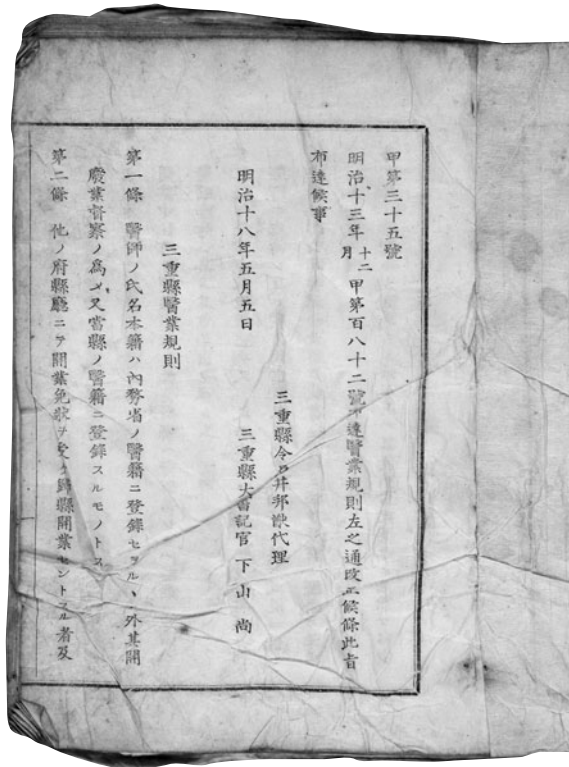 甲第三十五號
明治十三年十二月甲第百八十二號布達醫業規則左之通改正候條此旨
布達候事
明治十八年五月五日
三重縣令石井邦猷代理
三重縣大書記官 下山 尚
三重縣醫業規則
第一條 醫師ノ氏名本籍ハ內務省ノ醫籍ニ登錄セラルヽ外其開
廢業督察ノ爲メ又當縣ノ醫籍ニ登錄スルモノトス
第二條 他ノ府縣廳ニテ開業免狀ヲ受ケ歸縣開業セントスル者及